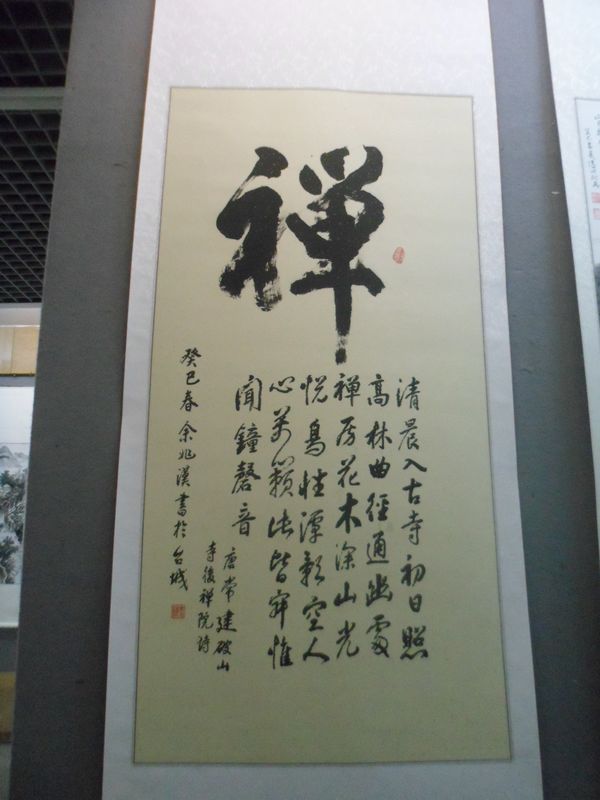 禪
清晨入古寺初日照
高林曲徑通幽處
禪房花木深山光
悅鳥性潭影空人
心萬籟此皆寂惟
聞鐘磬音
唐常建破山
寺後禪院詩
癸巳春余兆漢書於台城